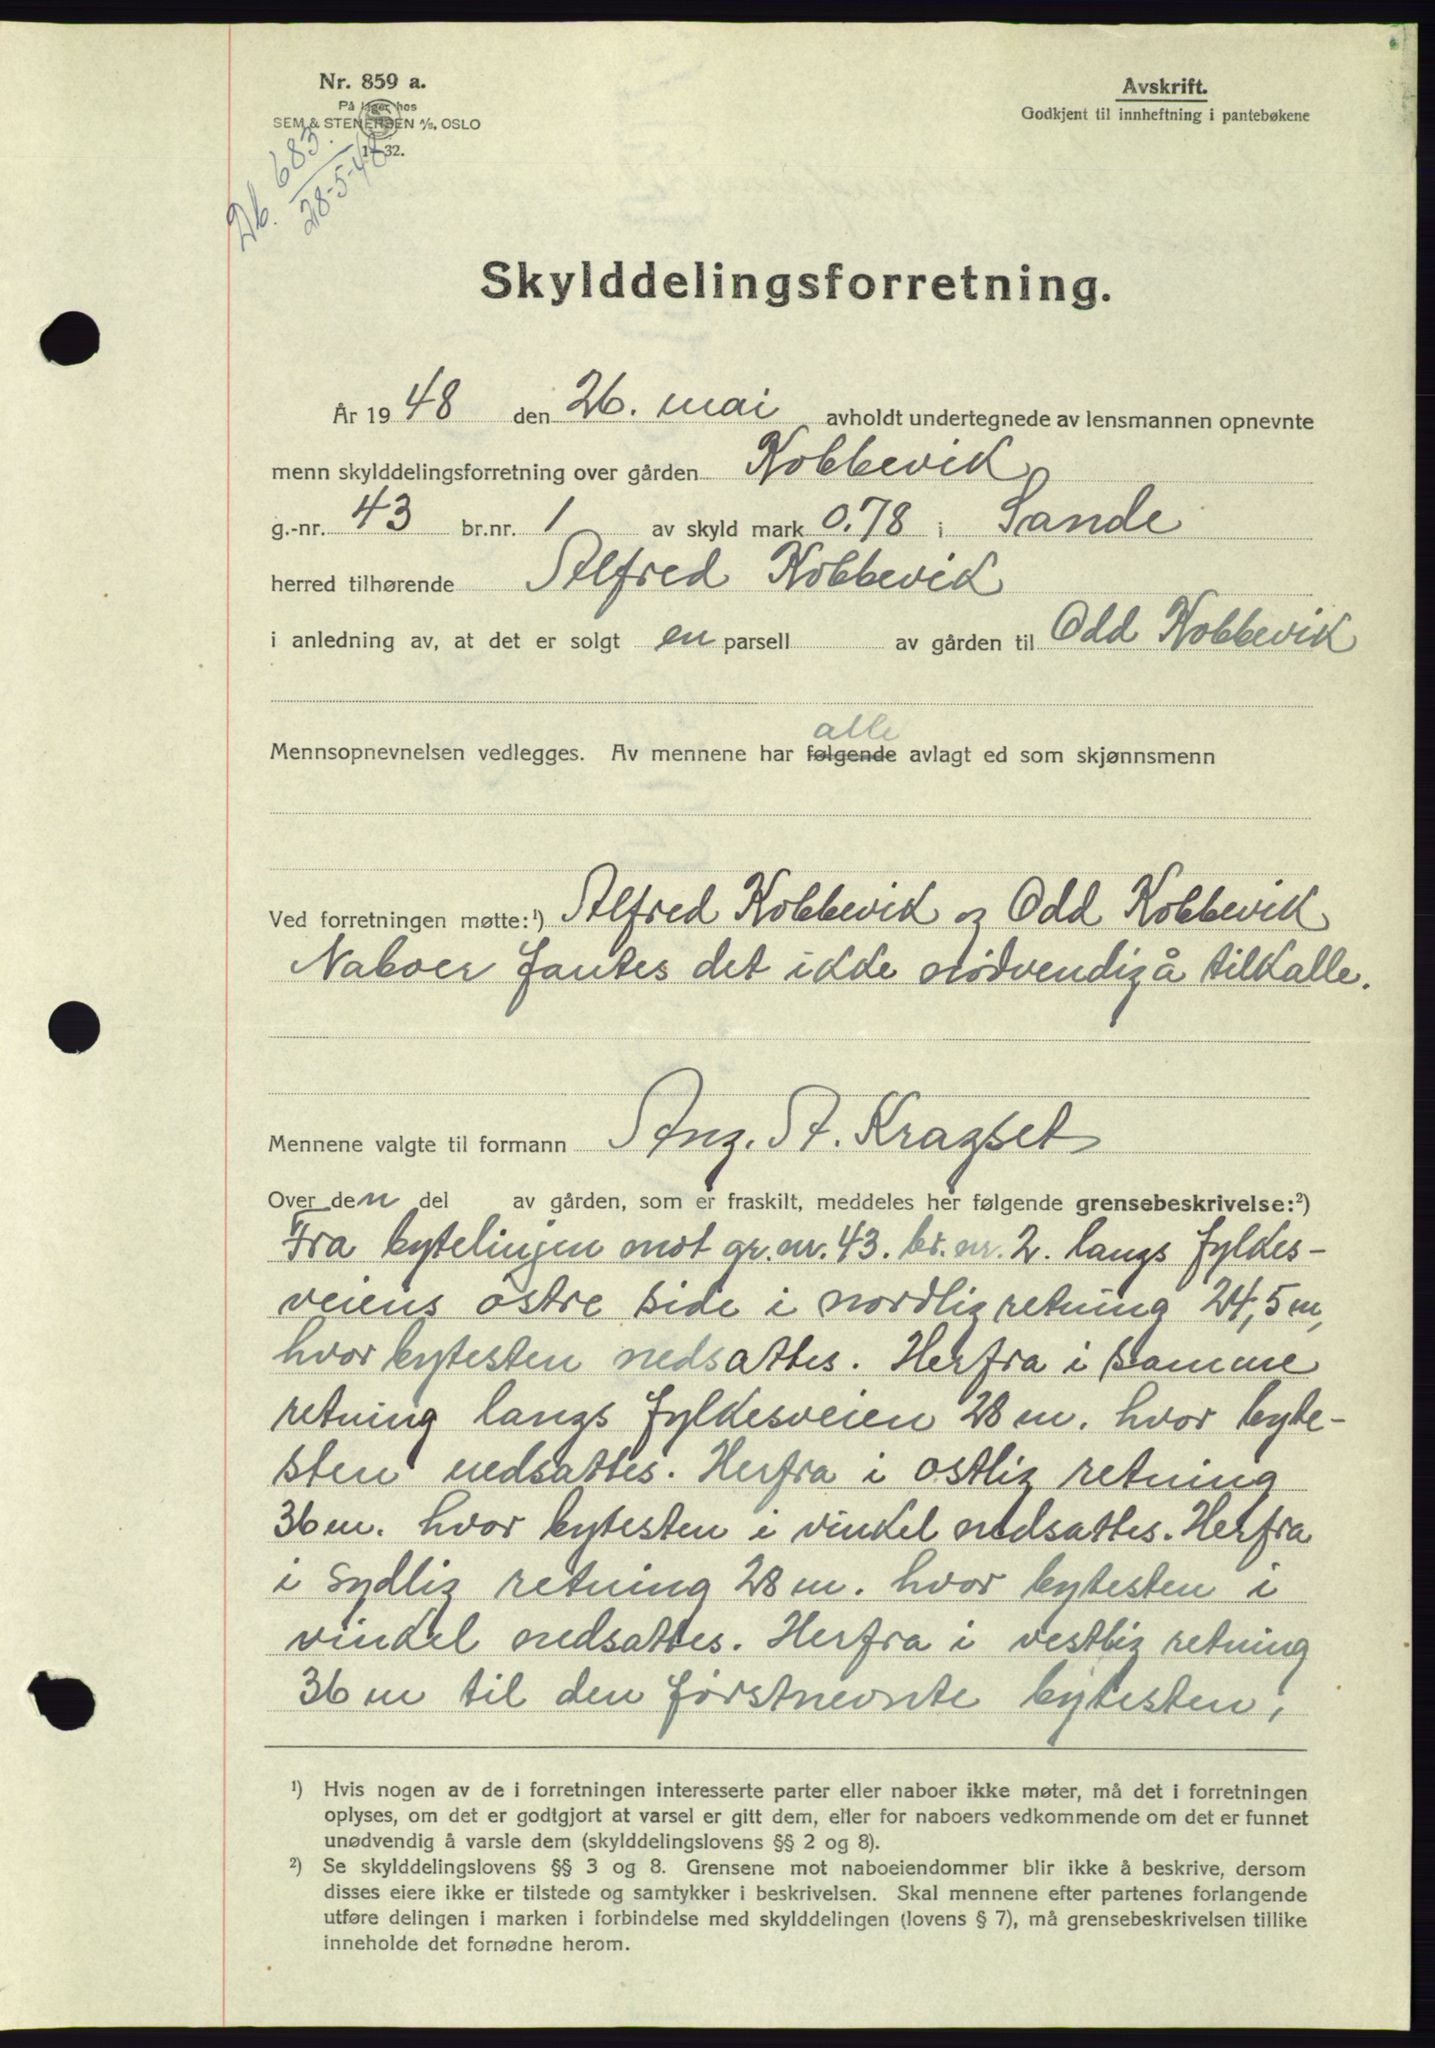 Nr. 859 a.
På lager hos
SEM & STENERSEN A/S, OSLO
1-32.
Db. 683.
28-5-48
Avskrift.
Godkjent til innheftning i pantebøkene
Skylddelingsforretning.
År 1948 den 26. mai avholdt undertegnede av lensmannen opnevnte
menn skylddelingsforretning over gården Kobbevik
g.-nr. 43 br.nr. 1 av skyld mark 0.78 i Sande
herred tilhørende Alfred Kobbevik
i anledning av, at det er solgt en parsell av gården til Odd Kobbevik
alle
Mennsopnevnelsen vedlegges. Av mennene har følgende avlagt ed som skjønnsmenn
Ved forretningen møtte:¹) Alfred Kobbevik og Odd Kobbevik
Naboer fantes det ikke nødvendig å tilkalle.
Mennene valgte til formann Ang. A. Kragset
Over den del av gården, som er fraskilt, meddeles her følgende grensebeskrivelse:²)
Fra bytelinjen mot gr. nr. 43. br. nr. 2. langs fyldes-
veiens østre side i nordlig retning 24,5 m,
hvor bytesten nedsattes. Herfra i samme
retning langs fyldesveien 28 m. hvor byte-
sten nedsattes. Herfra i østlig retning
36 m. hvor bytesten i vinkel nedsattes. Herfra
i sydlig retning 28 m. hvor bytesten i
vinkel nedsattes. Herfra i vestlig retning
36 m til den førstnevnte bytesten.
¹) Hvis nogen av de i forretningen interesserte parter eller naboer ikke møter, må det i forretningen
oplyses, om det er godtgjort at varsel er gitt dem, eller for naboers vedkommende om det er funnet
unødvendig å varsle dem (skylddelingslovens §§ 2 og 8).
²) Se skylddelingslovens §§ 3 og 8. Grensene mot naboeiendommer blir ikke å beskrive, dersom
disses eiere ikke er tilstede og samtykker i beskrivelsen. Skal mennene efter partenes forlangende
utføre delingen i marken i forbindelse med skylddelingen (lovens § 7), må grensebeskrivelsen tillike
inneholde det fornødne herom.